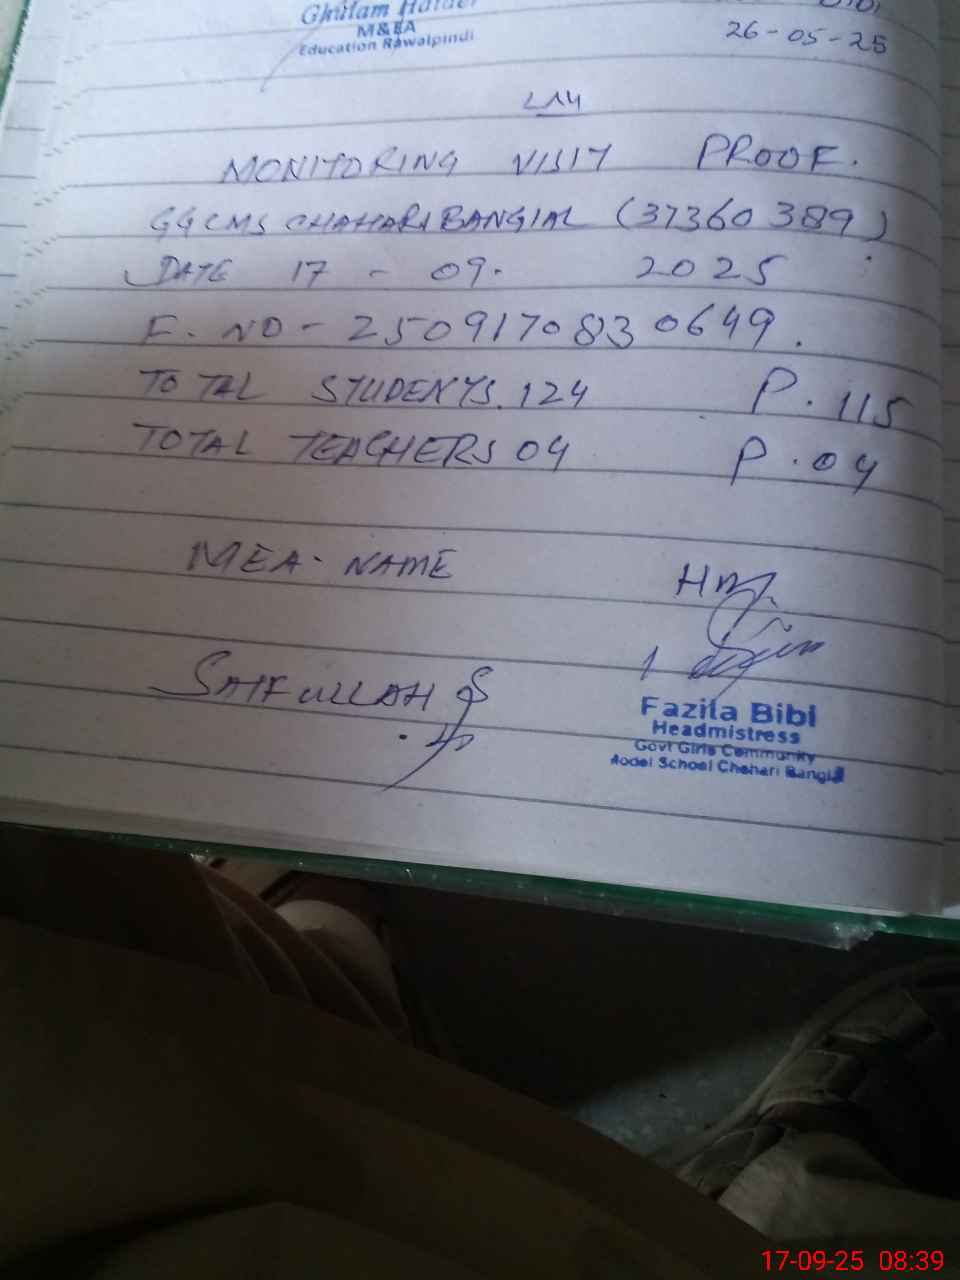 Ghulam Haider
M&EA
Education Rawalpindi
26-05-25
MONITORING VISIT PROOF.
GGCMS CHAHARI BANGIAL (37360389)
DATE 17 - 09. 2025
F. NO - 2509170830649.
TOTAL STUDENTS. 124 P. 115
TOTAL TEACHERS 04 P. 04
MEA. NAME
SAIFULLAH
Fazila Bibi
Headmistress
Govt Girls Community
Model School Chahari Bangial
17-09-25 08:39